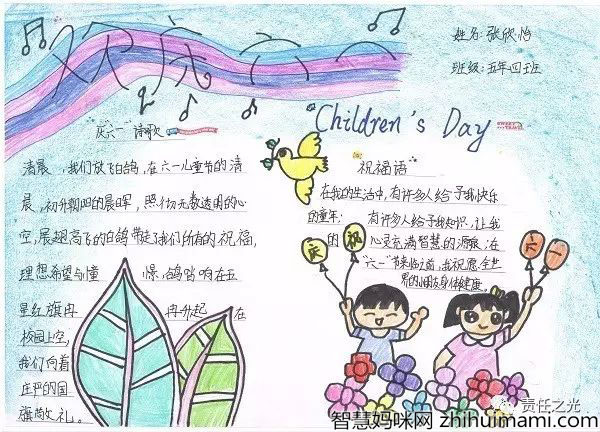 欢庆六一
姓名:张欣怡
班级:五年四班
Children's Day
"庆六一"诗歌
清晨,我们放飞白鸽,在六一儿童节的清
晨,初升朝阳的晨晖,照彻无数透明的心
空,展翅高飞的白鸽带走了我们所有的祝福,
理想希望与憧憬,鸽哨响在五
星红旗冉冉升起在
校园上空,
我们向着
庄严的国
旗敬礼。
祝福语
在我的生活中,有许多人给予我快乐
的童年;有许多人给予我知识,让我
的心灵充满智慧的源泉;在
"六一"节来临之前,我祝愿全世
界的小朋友身体健康。
庆
祝
六
一
责任之光
智慧妈咪网 zhihuimami.com